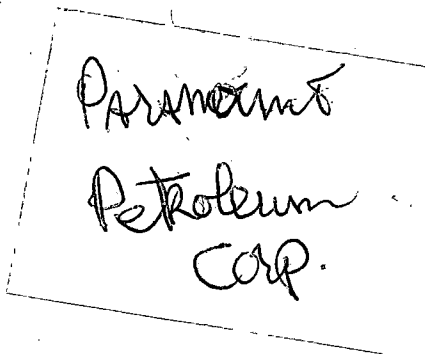 Paramount
Petroleum
Corp.